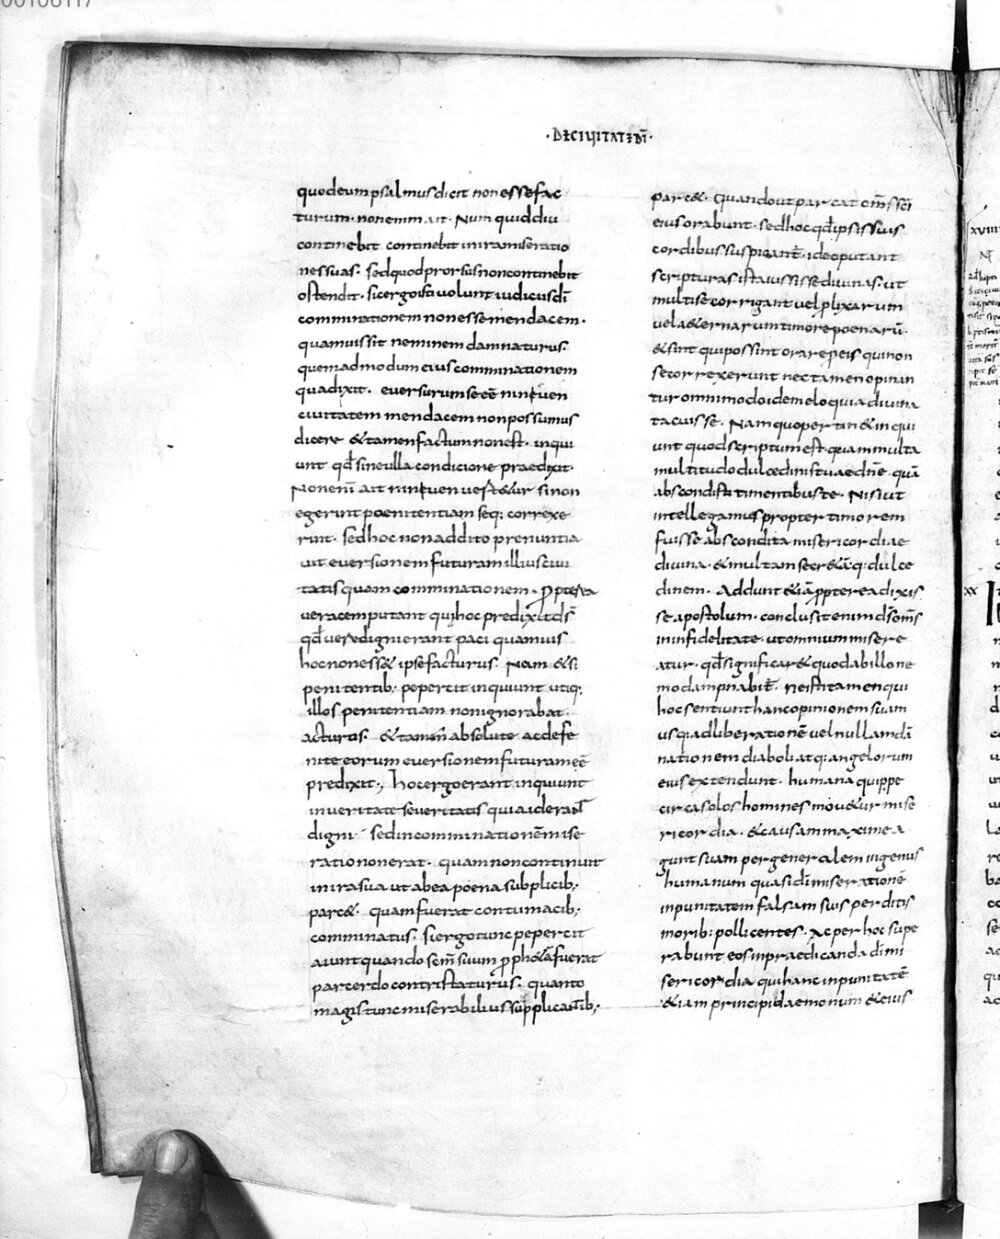 00106117
· DE CIUITATE DI ·
quodeum psalmus dicit non esse fac
turum · non enim ait · Num quid diu
continebit continebit in ira miseratio
nes suas · sed quod prorsus non continebit
ostendit · sic ergo isti uolunt iudicii dī
comminationem non esse mendacem ·
quamuis sit neminem damnaturus ·
quemadmodum eius comminationem
qua dixit · euersurum se eē nineuen
ciuitatem mendacem non possumus
dicere & tamen factum non est · inqui
unt qđ sine ulla condicione praedixit ·
Non enī ait nineue euert&ur si non
egerint poenitentiam seq; correxe
rint · sed hoc non addito prenuntia
uit euersionem futuram illius ciui
tatis quam comminationem · pp̄terea
ueracem putant qui hoc predixit dš
qđ uere digni erant pati quamuis
hoc non ess& ipse facturus · Nam & si
penitentib; pepercit inquiunt utiq;
illos penitentiam non ignorabat
acturos · & tamen absolute ac defe
nite eorum euersionem futuram eē
predixit · hoc ergo erant inquiunt
in ueritate seueritatis quia id erant
digni · sed in comminationē mise
rationon erat · quam non continuit
in ira sua ut ab ea poena subplicib;
parc& · quam fuerat contumacib;
comminatus · si ergo tunc pepercit
aiunt quando sc̄m suum p̄ph&ā fuerat
parcendo contristaturus · quanto
magis tunc miserabilius supplicantib;
parc& · quando ut parcat om̄s sc̄i
eius orabunt · sed hoc qđ ipsi suis
cordibus suspicant̄ · ideo putant
scripturas istacuisse diuinas · ut
multi se corrigant uel plixarum
uel a&ernarum timore poenarū ·
& sint qui possint orare p eis qui non
se correxerunt nec tamen opinan
tur omnimodo idem eloquia diuina
tacuisse · Nam quo pertin& inqui
unt quod scriptum est · quam multa
multitudo dulcedinis tuae dn̄e · quā
abscondisti timentibus te · Nisi ut
intellegamus propter timorem
fuisse absconditā misericordiae
diuinae · & multam secr&āq; dulce
dinem · Addunt &iā p̄pterea dixis
se apostolum · conclusit enim ds̄ om̄s
in infidelitate · ut omnium misere
atur · qđ significar& quod ab illo ne
mo damnabit̄ · ne isti tamen qui
hoc sentiunt hanc opinionem suam
usq; ad liberationē uel nullam dā
nationem diaboli atq; angelorum
eius extendunt · humana quippe
circa solos homines mou&ur mise
ricordia · & causam maxime a
gunt suam per generalem in genus
humanum quasi dī miserationē
inpunitatem falsam suis perditis
morib; pollicentes · Ac per hoc supe
rabunt eos in praedicanda dī mi
sericordia qui hanc inpunitatē
&iam principi daemonum & eius
xviiii
xx